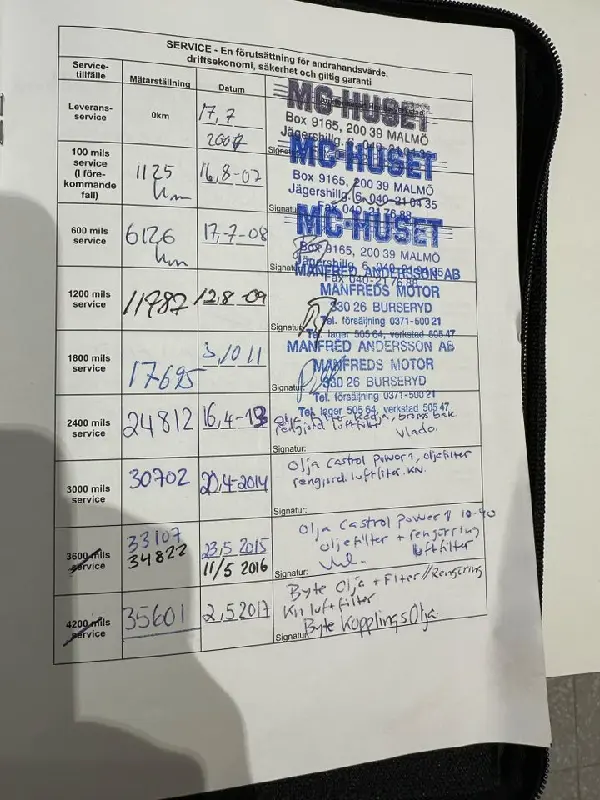 SERVICE - En förutsättning för andrahandsvärde,
driftsekonomi, säkerhet och giltig garanti
Service-
tillfälle
Mätarställning
Datum
Leverans-
service
0km
17,7
2007
MC-HUSET
Box 9165, 200 39 MALMÖ
100 mils
service
(I före-
kommande
fall)
1125
km
16,8-07
MC-HUSET
Box 9165, 200 39 MALMÖ
Jägershillg. 6, 040-21 04 35
Fax 040-21 76 83
600 mils
service
6126
km
17-7-08
MC-HUSET
Box 9165, 200 39 MALMÖ
1200 mils
service
11787
12.8-09
MANFRED ANDERSSON AB
MANFREDS MOTOR
330 26 BURSERYD
Tel. försäljning 0371-500 21
Tel. lager 505 64, verkstad 505 47
1800 mils
service
17695
3/10 11
MANFRED ANDERSSON AB
MANFREDS MOTOR
330 26 BURSERYD
Tel. försäljning 0371-500 21
Tel. lager 505 64, verkstad 505 47
2400 mils
service
24812
16,4-13
rengjord luftfilter
Vlado.
Signatur:
3000 mils
service
30702
20,4-2014
Olja Castrol Power1, oljefilter
rengjord luftfilter. KN.
Signatur:
3600 mils
service
33107
34822
23,5 2015
11/5 2016
Olja Castrol Power 1 10-40
oljefilter + rengörring
luftfilter
Signatur:
4200 mils
service
35601
2,5 2017
Byte Olja + Filter // Rengöring
KN luftfilter
Byte Kopplings Olja
Signatur: